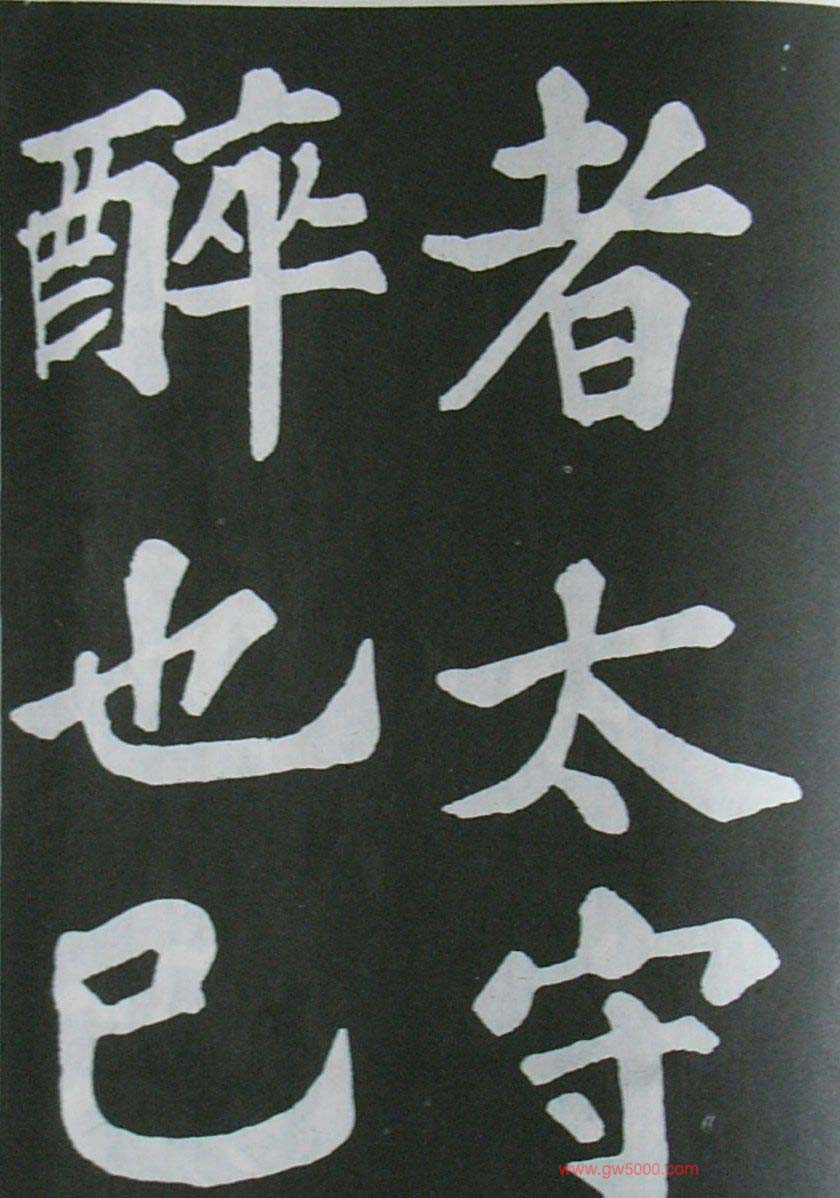 者太守
醉也已
www.gw5000.com